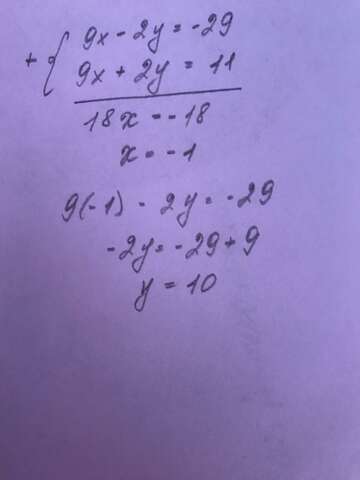 + { 9x - 2y = -29
9x + 2y = 11
18x = -18
x = -1
9(-1) - 2y = -29
-2y = -29 + 9
y = 10